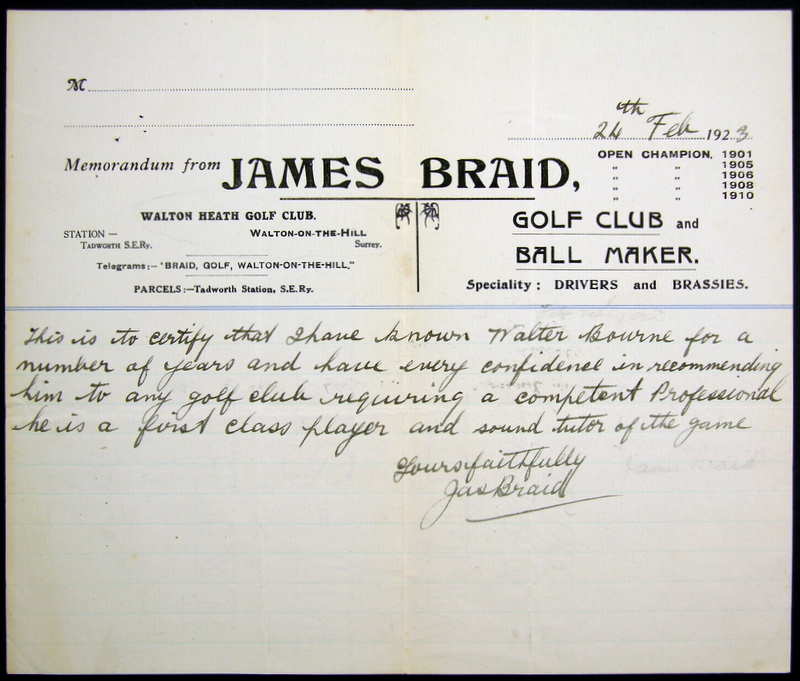 M
24th Feb 1923
Memorandum from JAMES BRAID,
OPEN CHAMPION, 1901
" " 1905
" " 1906
" " 1908
" " 1910
WALTON HEATH GOLF CLUB.
STATION — WALTON-ON-THE-HILL
TADWORTH S.E.Ry. Surrey.
Telegrams:— "BRAID, GOLF, WALTON-ON-THE-HILL."
PARCELS:—Tadworth Station, S.E.Ry.
GOLF CLUB and
BALL MAKER.
Speciality: DRIVERS and BRASSIES.
This is to certify that I have known Walter Bourne for a
number of years and have every confidence in recommending
him to any golf club requiring a competent Professional
he is a first class player and sound tutor of the game
Yours faithfully
Jas Braid